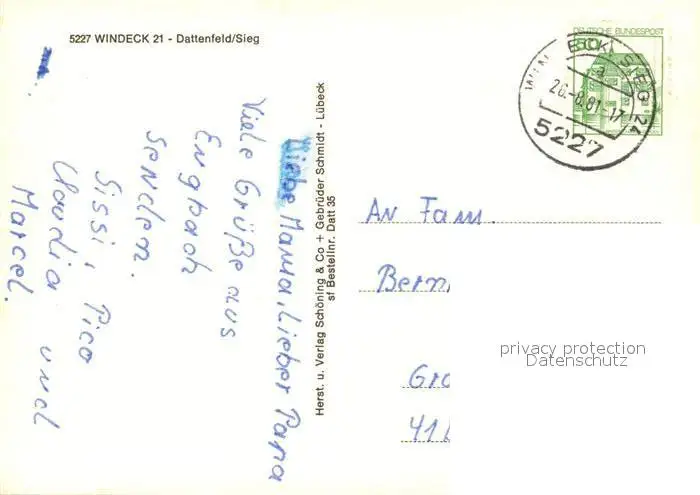 5227 WINDECK 21 - Dattenfeld/Sieg
Liebe Mama, Lieber Papa
Viele Grüße aus
Engbach
senden.
Sissi, Pico
Claudia und
Marcel.
Herst. u. Verlag Schöning & Co + Gebrüder Schmidt - Lübeck
sf Bestellnr. Datt 35
DEUTSCHE BUNDESPOST
50
WINDECK, SIEG 24
26.-8.81-17
5227
An Fam.
Bern
Gro
41
privacy protection
Datenschutz